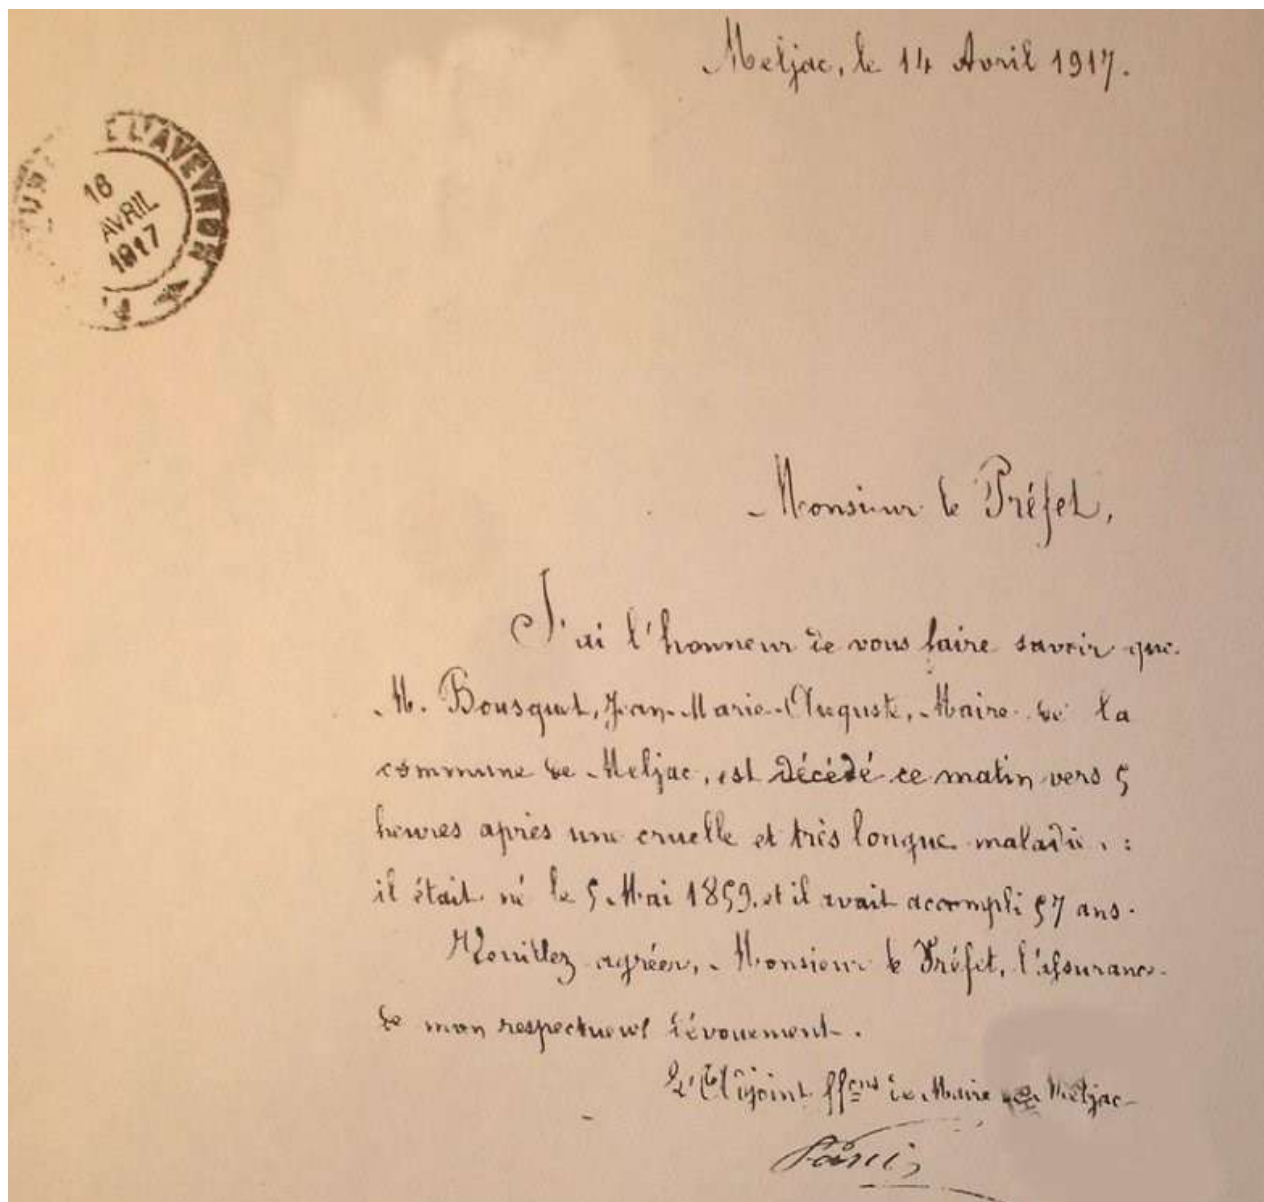 Meljac, le 14 Avril 1917.
E L'AVEYRON
16
AVRIL
1917
Monsieur le Préfet,
J'ai l'honneur de vous faire savoir que
M. Bousquet, Jean-Marie-Auguste, Maire de la
commune de Meljac, est décédé ce matin vers 5
heures après une cruelle et très longue maladie. :
il était né le 5 Mai 1859. et il avait accompli 57 ans.
Veuillez agréer, Monsieur le Préfet, l'assurance
de mon respectueux dévouement.
L'Adjoint ff.ons de Maire de Meljac